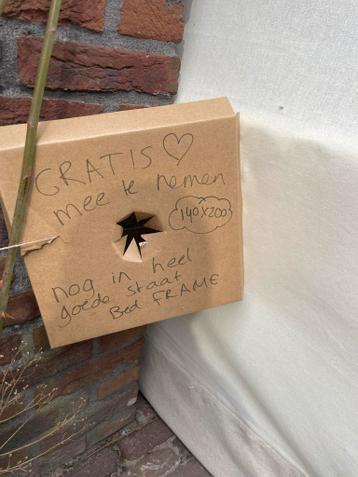 GRATIS ♡
mee te nemen
140x200
nog in heel
goede staat
Bed FRAME